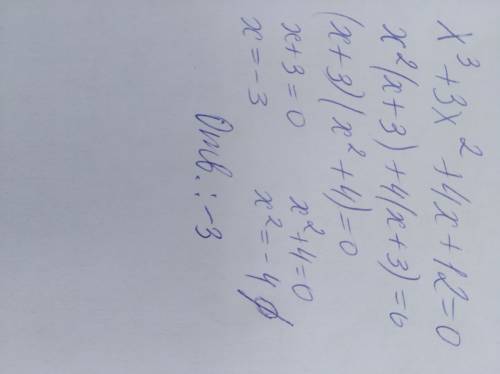 x³ + 3x² + 4x + 12 = 0
x²(x+3) + 4(x+3) = 0
(x+3)(x²+4) = 0
x+3 = 0 x²+4 = 0
x = -3 x² = -4 ∅
Отв.: -3